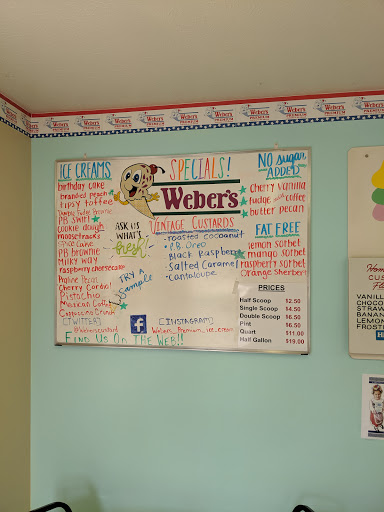 Weber's PREMIUM
ICE CREAMS
birthday cake
brandied peach
tipsy toffee
PB SWirl
cookie dough
moosetracks
PB brownie
Milky Way
raspberry cheesecake
Praline Pecan
Cherry Cordial
Pistachio
Mexican Coffee
Cappuccino Crunch
[TWITTER]
FIND US ON THE WEB!!
ASK US
WHAT'S
fresh!
TRY A
Sample
SPECIALS!
Weber's
VINTAGE CUSTARDS
- roasted cocoanut
- P.B. Oreo
- Black Raspberry
- Salted Caramel
- Cantaloupe
f
[INSTAGRAM]
Webers_Premium_ice_cream
NO Sugar
ADDED
cherry vanilla
fudge
coffee
butter pecan
FAT FREE
lemon sorbet
mango sorbet
raspberry sorbet
Orange Sherbert
PRICES
Half Scoop $2.50
Single Scoop $4.50
Double Scoop $6.50
Pint $6.50
Quart $11.00
Half Gallon $19.00
VANILL
CHOCO
STRAW
BANAN
LEMON
FROSTE